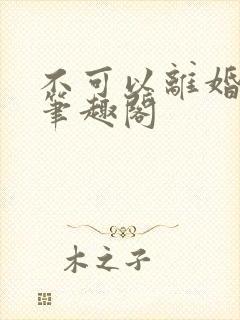 不可以離婚
筆趣閣
木之子